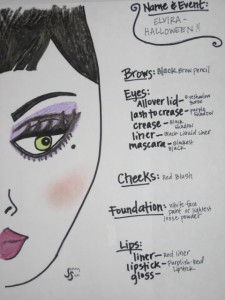 Name & Event:
ELVIRA -
HALLOWEEN!!
Brows: Black Brow Pencil
Eyes:
All over lid - Eyeshadow
lash to crease - Purple
shadow
crease - Black
shadow
liner - Black Liquid Liner
mascara - Blackest
Black
Cheeks: Red Blush
Foundation: White face
paint or lightest
loose powder
Lips:
liner - Red liner
lipstick - Purplish-Red
gloss - Lipstick